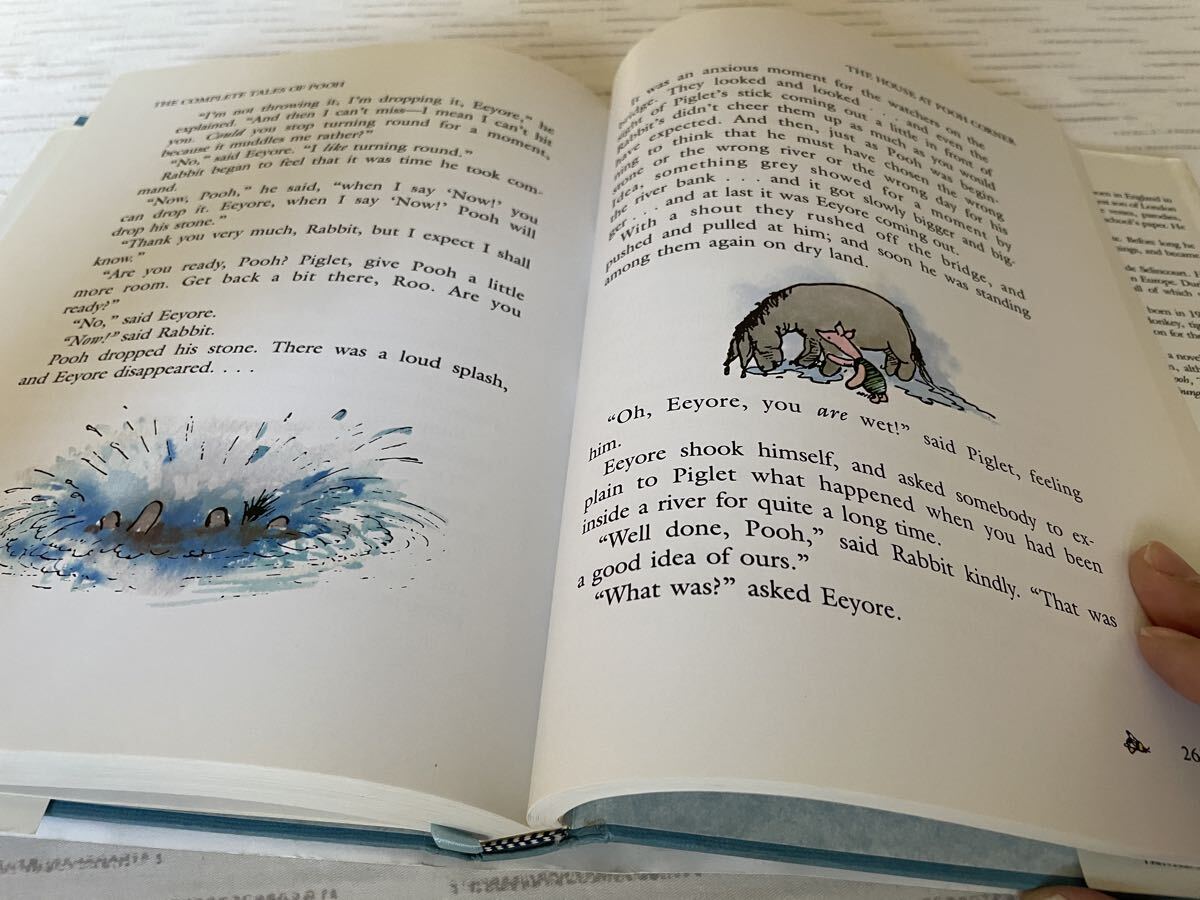 THE COMPLETE TALES OF POOH
"I'm not throwing it, I'm dropping it, Eeyore," he
explained. "And then I can't miss—I mean I can't hit
you. Could you stop turning round for a moment,
because it muddles me rather?"
"No," said Eeyore. "I like turning round."
Rabbit began to feel that it was time he took com-
mand.
"Now, Pooh," he said, "when I say 'Now!' you
can drop it. Eeyore, when I say 'Now!' Pooh will
drop his stone."
"Thank you very much, Rabbit, but I expect I shall
know."
"Are you ready, Pooh? Piglet, give Pooh a little
more room. Get back a bit there, Roo. Are you
ready?"
"No," said Eeyore.
"Now!" said Rabbit.
Pooh dropped his stone. There was a loud splash,
and Eeyore disappeared. . . .
THE HOUSE AT POOH CORNER
It was an anxious moment for the watchers on the
bridge. They looked and looked . . . and even the
sight of Piglet's stick coming out a little in front of
Rabbit's didn't cheer them up as much as you would
have expected. And then, just as Pooh was begin-
ning to think that he must have chosen the wrong
stone or the wrong river or the wrong day for his
Idea, something grey showed for a moment by
the river bank . . . and it got slowly bigger and big-
ger . . . and at last it was Eeyore coming out.
With a shout they rushed off the bridge, and
pushed and pulled at him; and soon he was standing
among them again on dry land.
"Oh, Eeyore, you are wet!" said Piglet, feeling
him.
Eeyore shook himself, and asked somebody to ex-
plain to Piglet what happened when you had been
inside a river for quite a long time.
"Well done, Pooh," said Rabbit kindly. "That was
a good idea of ours."
"What was?" asked Eeyore.
26
born in England in
son of London
verses, parodies,
school's paper. He
Before long he
and became
de Selincourt. H
n Europe. Duri
ll of which
born in 19
donkey, the
on for the
a novel
n, alth
Pooh,
Young